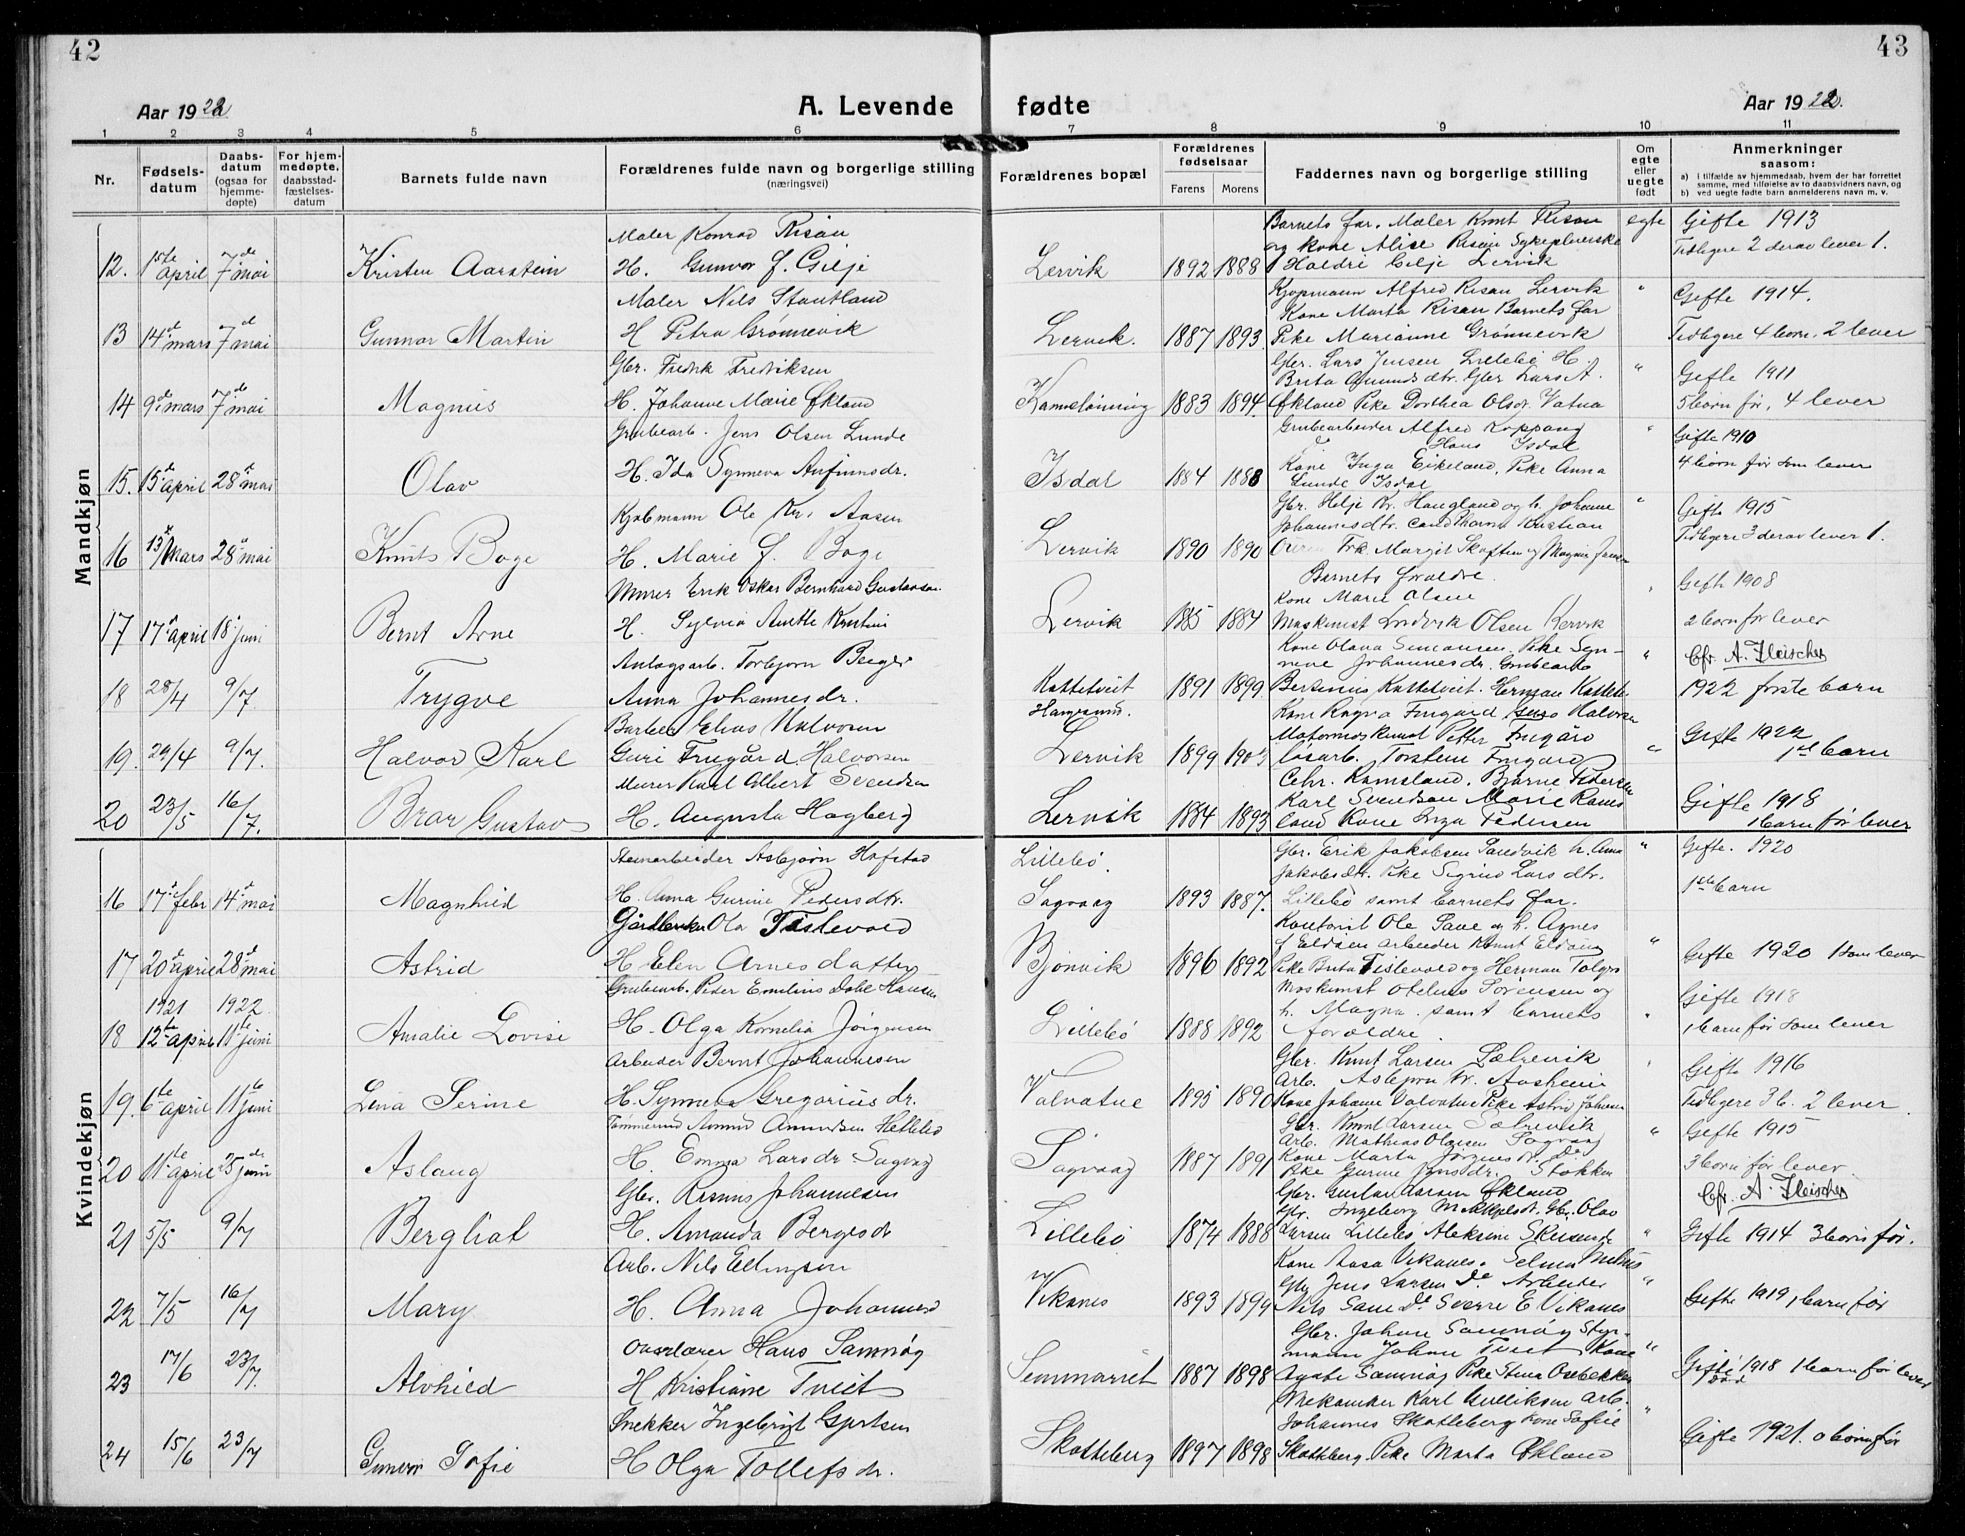 42
43
Aar 1922
A. Levende fødte
Aar 1922.
1 2 3 4 5 6 7 8 9 10 11
Nr.
Fødsels-
datum
Daabs-
datum
(ogsaa for
hjemme-
døpte)
For hjem-
medøpte,
daabsstad-
fæstelses-
datum
Barnets fulde navn
Forældrenes fulde navn og borgerlige stilling
(næringsvei)
Forældrenes bopæl
Forældrenes
fødselsaar
Farens Morens
Faddernes navn og borgerlige stilling
Om
egte
eller
uegte
født
Anmerkninger
saasom:
a) i tilfælde av hjemmedaab, hvem der har forrettet
samme, med tilføielse av to daabsvidners navn, og
b) ved uegte fødte barn anmelderens navn m. v.
Mandkjøn
12. 15de april 7de mai
Kristen Aarstein
Maler Konrad Risan
H. Gunvor J. Gilje
Lervik 1892 1888
Barnets far, Maler Knut Risan
og kone Alise Risan Sykepleierske
Haldri Gilje Lervik
egte
Gifte 1913
Tidligere 2 derav lever 1.
13 14d mars 7d mai
Gunnar Martin
Maler Nils Stautland
H Petra Grønnevik
Lervik. 1887 1893.
Kjøpmann Alfred Risan Lervik
Kone Marta Risan Barnets far
Pike Marianne Grønnevik
"
Gifte 1914.
Tidligere 4 born. 2 lever
14 9d mars 7de mai
Magnus
Gbr. Fredrik Fredriksen
H. Johanne Marie Økland
1883 1894
Gbr. Lars Jensen Lillebø H.
Brita Amundsdtr. Gbr Lars A.
Økland Pike Dorthea Olsdr. Vatna
"
Gifte 1911
5 born før, 4 lever
15. 15d april 28d mai
Olav
Grubearb. Jens Olsen Lunde
H. Ida Synneva Anfinnsdr.
Isdal 1884 1888
Grubearbeider Alfred Koppang
Hans Isdal
Kone Inga Eikeland, Pike Anna
Lunde Isdal
"
Gifte 1910
4 born før som lever
16 13d mars 28d mai
Knut Boge
Kjøbmann Ole Kr. Aasen
H. Marie J. Boge
Lervik 1890 1890
Gbr. Helje Kr. Haugland og h. Johanne
Johannesdtr. cand Pharm Kristian
Frk. Margit Skoftun og Magnus
"
Gifte 1915
Tidligere 3 derav lever 1.
17 17d april 18d juni
Bernt Arne
Murer Erik Oskar Bernhard Gustavson
H. Sylvia Anette Kristine
Lervik 1885 1884
Barnets foreldre.
Kone Marie Olsen
Maskinist Ludvik Olsen Lervik
"
Gifte 1908
2 born før lever
Cfr. A. Fleischer
18 28/4 9/7.
Trygve
Anlagsarb. Torbjørn Berger
Anna Johannesdr.
Kattetveit
1891 1899
Kone Olana Simonsen. Pike Syn-
neve Johannesdr. Grubearb
Bertinius Kattetveit. Herman Kattet.
"
1922 første barn
19. 29/4 9/7.
Halvor Karl
Barber Elias Halvorsen
Guri Frugård Halvorsen
Lervik 1899
Kone Ragna Frugård Halvorsen
Petter Frugård
løsarb. Torstein Frugård
"
Gifte 1922
1ste barn
20 23/5 16/7.
Bror Gustav
Murer Karl Albert Svendsen
H. Augusta Hogberg
Lervik 1884 1893
Ramsland. Bjarne Pedersen
Karl Svendsen Marie Rams
land Kone Inga Pedersen
Gifte 1918
1 barn før lever
Kvindekjøn
16 17d febr 14d mai
Magnhild
Steinarbeider Asbjørn Hofstad
H. Anna Gurine Pedersdtr.
Lillebø.
Sagvaag 1893 1887.
Gbr. Erik Jakobsen Sandvik h. Anna
Jakobsdtr. Pike Sigrid Larsdtr.
Lillebø samt barnets far.
"
Gifte. 1920
1ste barn
17 20d april 28d mai
Astrid
Gårdbruker Ola Tislevold
H Elen Arnesdatter
Bjørvik 1896 1892
Kontorist Ole Save og h. Agnes
Arbeider Knut Eldøen
Pike Brita Tislevold og Herman
"
Gifte 1920 1 som lever
1921 1922
18 12te april 11te juni
Amalie Lovise
Grubearb. Peder Emilius Dahl Hansen
H. Olga Kornelia Jørgensen
Lillebø 1888 1892
Maskinist Otelius Sørensen og
h. Magna. samt barnets
forældre
"
Gifte 1918
1 barn før som lever
19. 6te april 11te juni
Lena Serine
Arbeider Bernt Johannesen
H. Synneva Gregoriusdr.
Valvatne 1895 1890
Gbr. Knut Larsen Sælrevik
Arb. Asbjørn Tr. Aasheim
Kone Johanne Valvatne Pike Astrid Johansen
"
Gifte 1916
Tidligere 3 b. 2 lever.
20 11te april 25de juni
Aslaug
Tømmermd Amund Amundsen Hetlelid
H. Emma Larsdr Sagvag
Sagvaag 1887 1891
Gbr. Knut Larsen Sælrevik
Arb. Mathias Olausen Sagvaag
Kone Marta Jørginesdr. Do
Pike Gurine Jensdr. Stokken
"
Gifte 1915
3 born før lever.
Cfr. A. Fleischer
21 5/5 9/7
Bergliot
Gbr. Rasmus Johannesen
H. Amanda Bergesdr
Lillebø 1874 1888
Gbr. Gustav Larsen Økland
Gbr. Ingeborg Mikkelsdr. Gbr. Olav
Larsen Lillebø Aleksine Skeisunde
"
Gifte 1914 3 born før.
22 7/5 16/7
Mary
Arb. Nils Ellingsen
H. Anna Johannesd
Vikanes 1893 1899
Kone Aasa Vikanes. Selma
Gbr Jens Larsen Do Arbeider
Nils Save do Sverre E Vikanes
"
Gifte 1919 1 barn før
23 17/6 23/7.
Alvhild
Overlærer Hans Samnøy
H Kristiane Tveit
1887 1898
Gbr. Johan Samnøy Styr-
mann Johan Tveit Kone
Agate Samnøy Pike Stina Osebakken
"
Gifte 1918 1 barn før lever
24 15/6 23/7
Gunvor Sofie
Snekker Ingebrigt Gjertsen
H Olga Tollefsdr.
Skotteberg 1897 1898
Mekaniker Karl Gulliksen arb.
Johannes Skotteberg Kone Sofie
Skotteberg. Pike Marta Økland
"
Gifte 1921. 0 born før